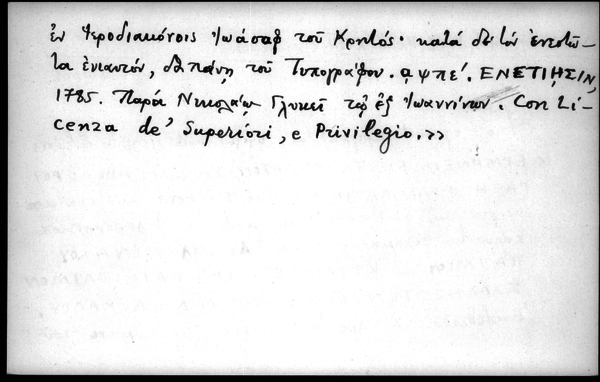 ἐν Ἱεροδιακόνοις Ἰωάσαφ τοῦ Κρητός· κατά δέ τόν ἐνεστῶ-
τα ἐνιαυτόν, δαπάνῃ τοῦ Τυπογράφου. ͵αψπε΄. ΕΝΕΤΙΗΣΙΝ,
1785. Παρά Νικολάῳ Γλυκεῖ τῷ ἐξ Ἰωαννίνων. Con Li-
cenza de' Superiori, e Privilegio.>>